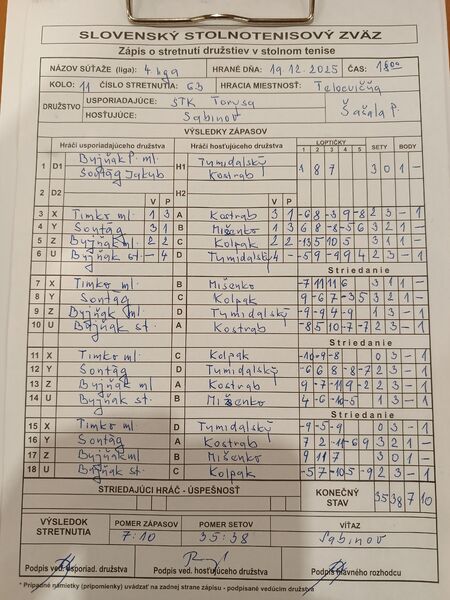 SLOVENSKÝ STOLNOTENISOVÝ ZVÄZ
Zápis o stretnutí družstiev v stolnom tenise
NÁZOV SÚŤAŽE (liga): 4 liga HRANÉ DŇA 19.12.2025 ČAS: 18:00
KOLO: 11 ČÍSLO STRETNUTIA: 63 HRACIA MIESTNOSŤ: Telocvičňa
DRUŽSTVO USPORIADAJÚCE: STK Torysa Šašala P.
HOSŤUJÚCE: Sabinov
VÝSLEDKY ZÁPASOV
Hráči usporiadajúceho družstva Hráči hosťujúceho družstva LOPTIČKY SETY BODY
V P V P 1 2 3 4 5
1 D1 Byjňák P. ml. H1 Tumidalský 1 8 7 3 0 1 -
Sontág Jakub Kostrab
2 D2 H2
3 X Timko ml. 1 3 A Kostrab 3 1 -6 8 -3 9 -8 2 3 - 1
4 Y Sontág 3 1 B Mišenko 1 3 6 8 -8 -5 6 3 2 1 -
5 Z Byjňák ml. 2 2 C Kolpak 2 2 -13 5 10 5 3 1 1 -
6 U Byjňák st. - 4 D Tumidalský 4 - -5 9 -9 9 4 2 3 - 1
Striedanie
7 X Timko ml. B Mišenko -7 11 11 6 3 1 1 -
8 Y Sontág C Kolpak 9 -6 7 -3 5 3 2 1 -
9 Z Byjňák ml. D Tumidalský -9 -9 4 -9 1 3 - 1
10 U Byjňák st. A Kostrab -8 5 10 -7 -7 2 3 - 1
Striedanie
11 X Timko ml. C Kolpak -10 -9 -8 0 3 - 1
12 Y Sontág D Tumidalský -6 6 8 -8 -7 2 3 - 1
13 Z Byjňák ml A Kostrab 9 -7 11 -9 -2 2 3 - 1
14 U Byjňák st. B Mišenko 4 -6 -10 -5 1 3 - 1
Striedanie
15 X Timko ml D Tumidalský -9 -5 -9 0 3 - 1
16 Y Sontág A Kostrab 7 2 -11 -6 9 3 2 1 -
17 Z Byjňák ml B Mišenko 9 11 7 3 0 1 -
18 U Byjňák st. C Kolpak -5 7 -10 5 -9 2 3 - 1
STRIEDAJÚCI HRÁČ - ÚSPEŠNOSŤ KONEČNÝ STAV 35 38 7 10
VÝSLEDOK STRETNUTIA POMER ZÁPASOV POMER SETOV VÍŤAZ
7:10 35:38 Sabinov
Podpis ved. usporiad. družstva Podpis ved. hosťujúceho družstva Podpis hlavného rozhodcu
* Prípadné námietky (pripomienky) uvádzať na zadnej strane zápisu - podpísané vedúcim družstva